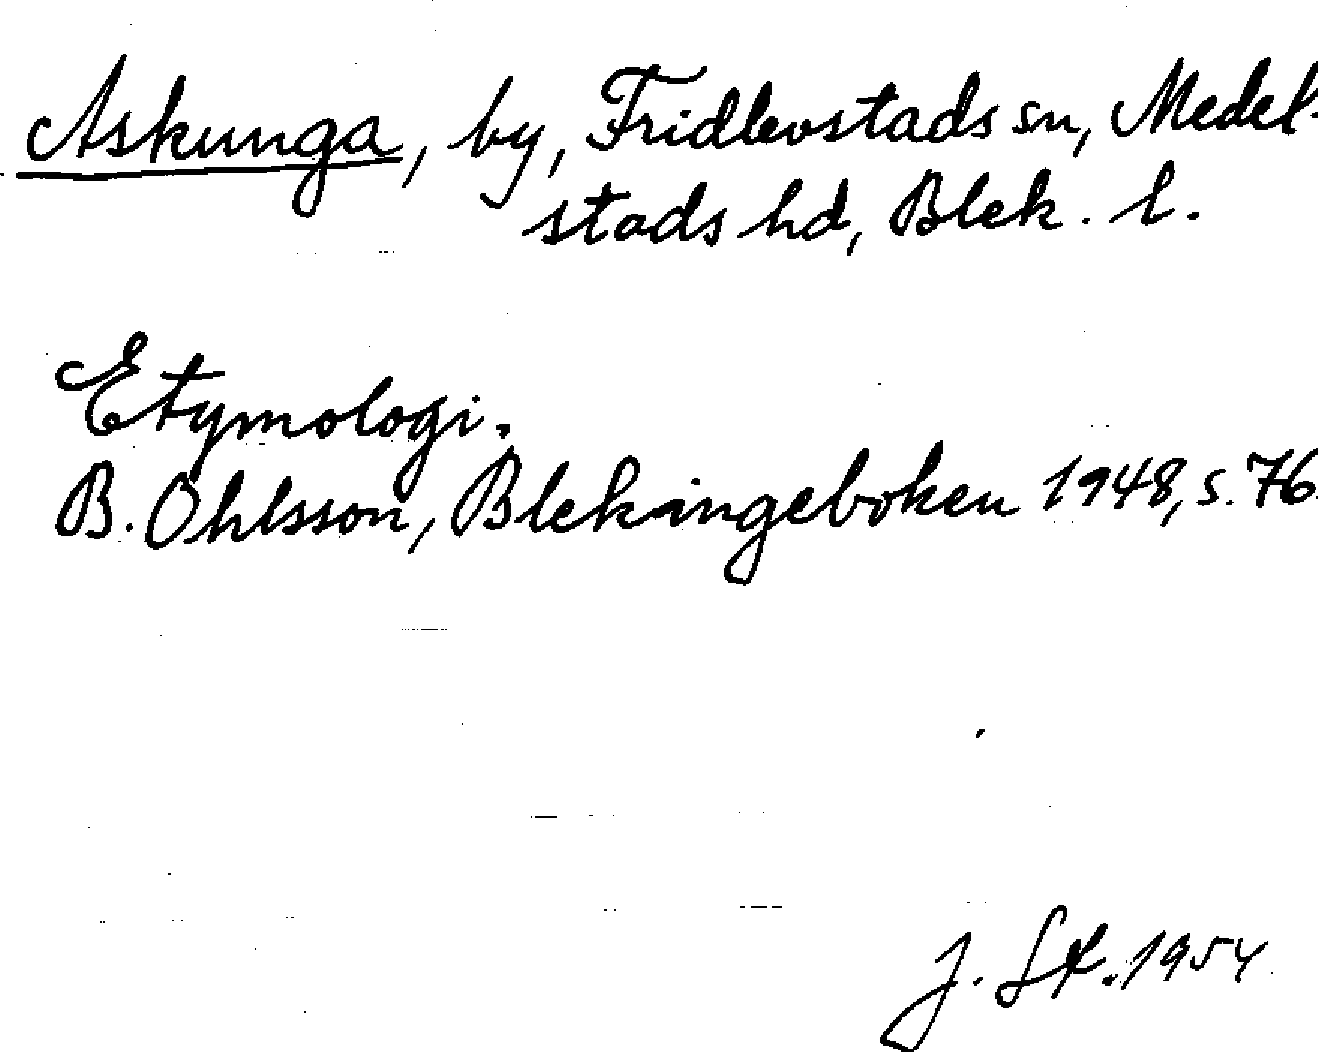 Askunga, by, Fridlevstads sn, Medel-
stads hd, Blek. l.
Etymologi.
B. Ohlsson, Blekingeboken 1948, s. 76.
J. 1954